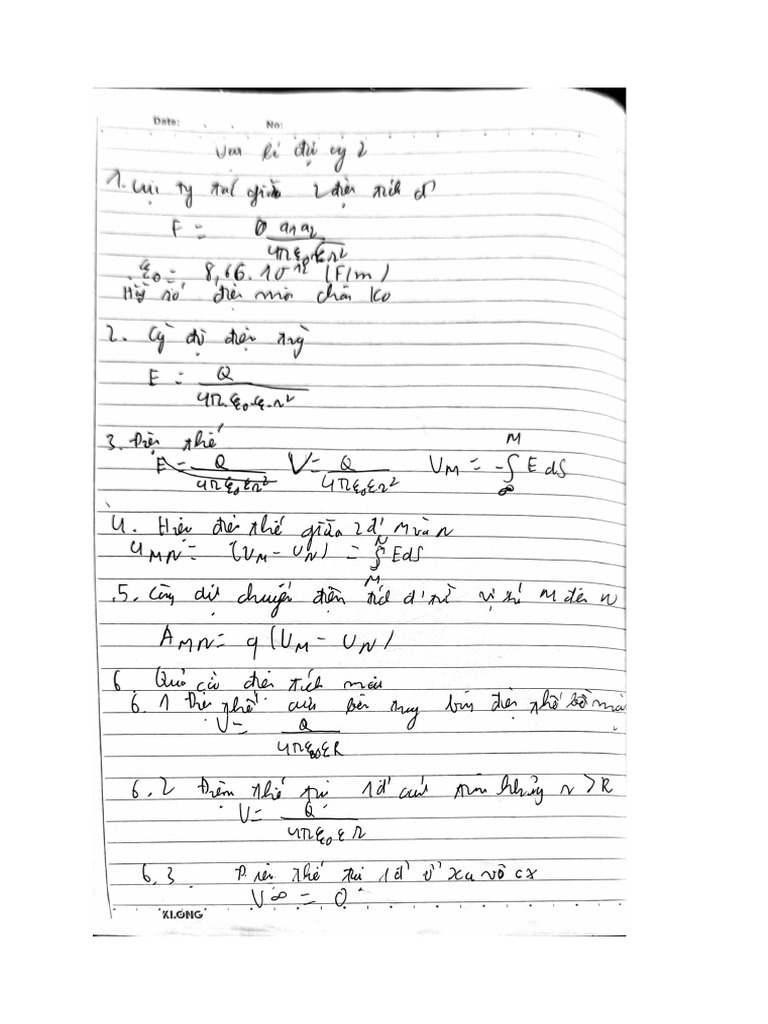 Date: No:
Vật lí đại cg 2
1. lực tg tác giữa 2 điện tích đ'
F = q1q2 / 4πε0.εr²
ε0 = 8,86.10^-12 (F/m)
Hằg số điện môi chân ko
2. Cg độ điện trg
E = Q / 4π.ε0.ε.r²
3. Điện thế
E = Q / 4πε0εr² V = Q / 4πε0εr² VM = -∫_∞^M E dS
4. Hiệu điện thế giữa 2 đ' M và N
UMN = (VM - VN) = ∫_M^N EdS
5. Công dịch chuyển điện tích đ' từ vị trí M đến N
AMN = q(VM - VN)
6 Quả cầu điện tích mặt
6.1 Điện thế bên bằg điện thế bề mặt
V = Q / 4πε0εR
6.2 Điện thế tại 1 đ' r > R
V = Q / 4πε0εr
6.3 Điện thế tại 1 đ' ở xa vô cx
V∞ = 0
KLONG